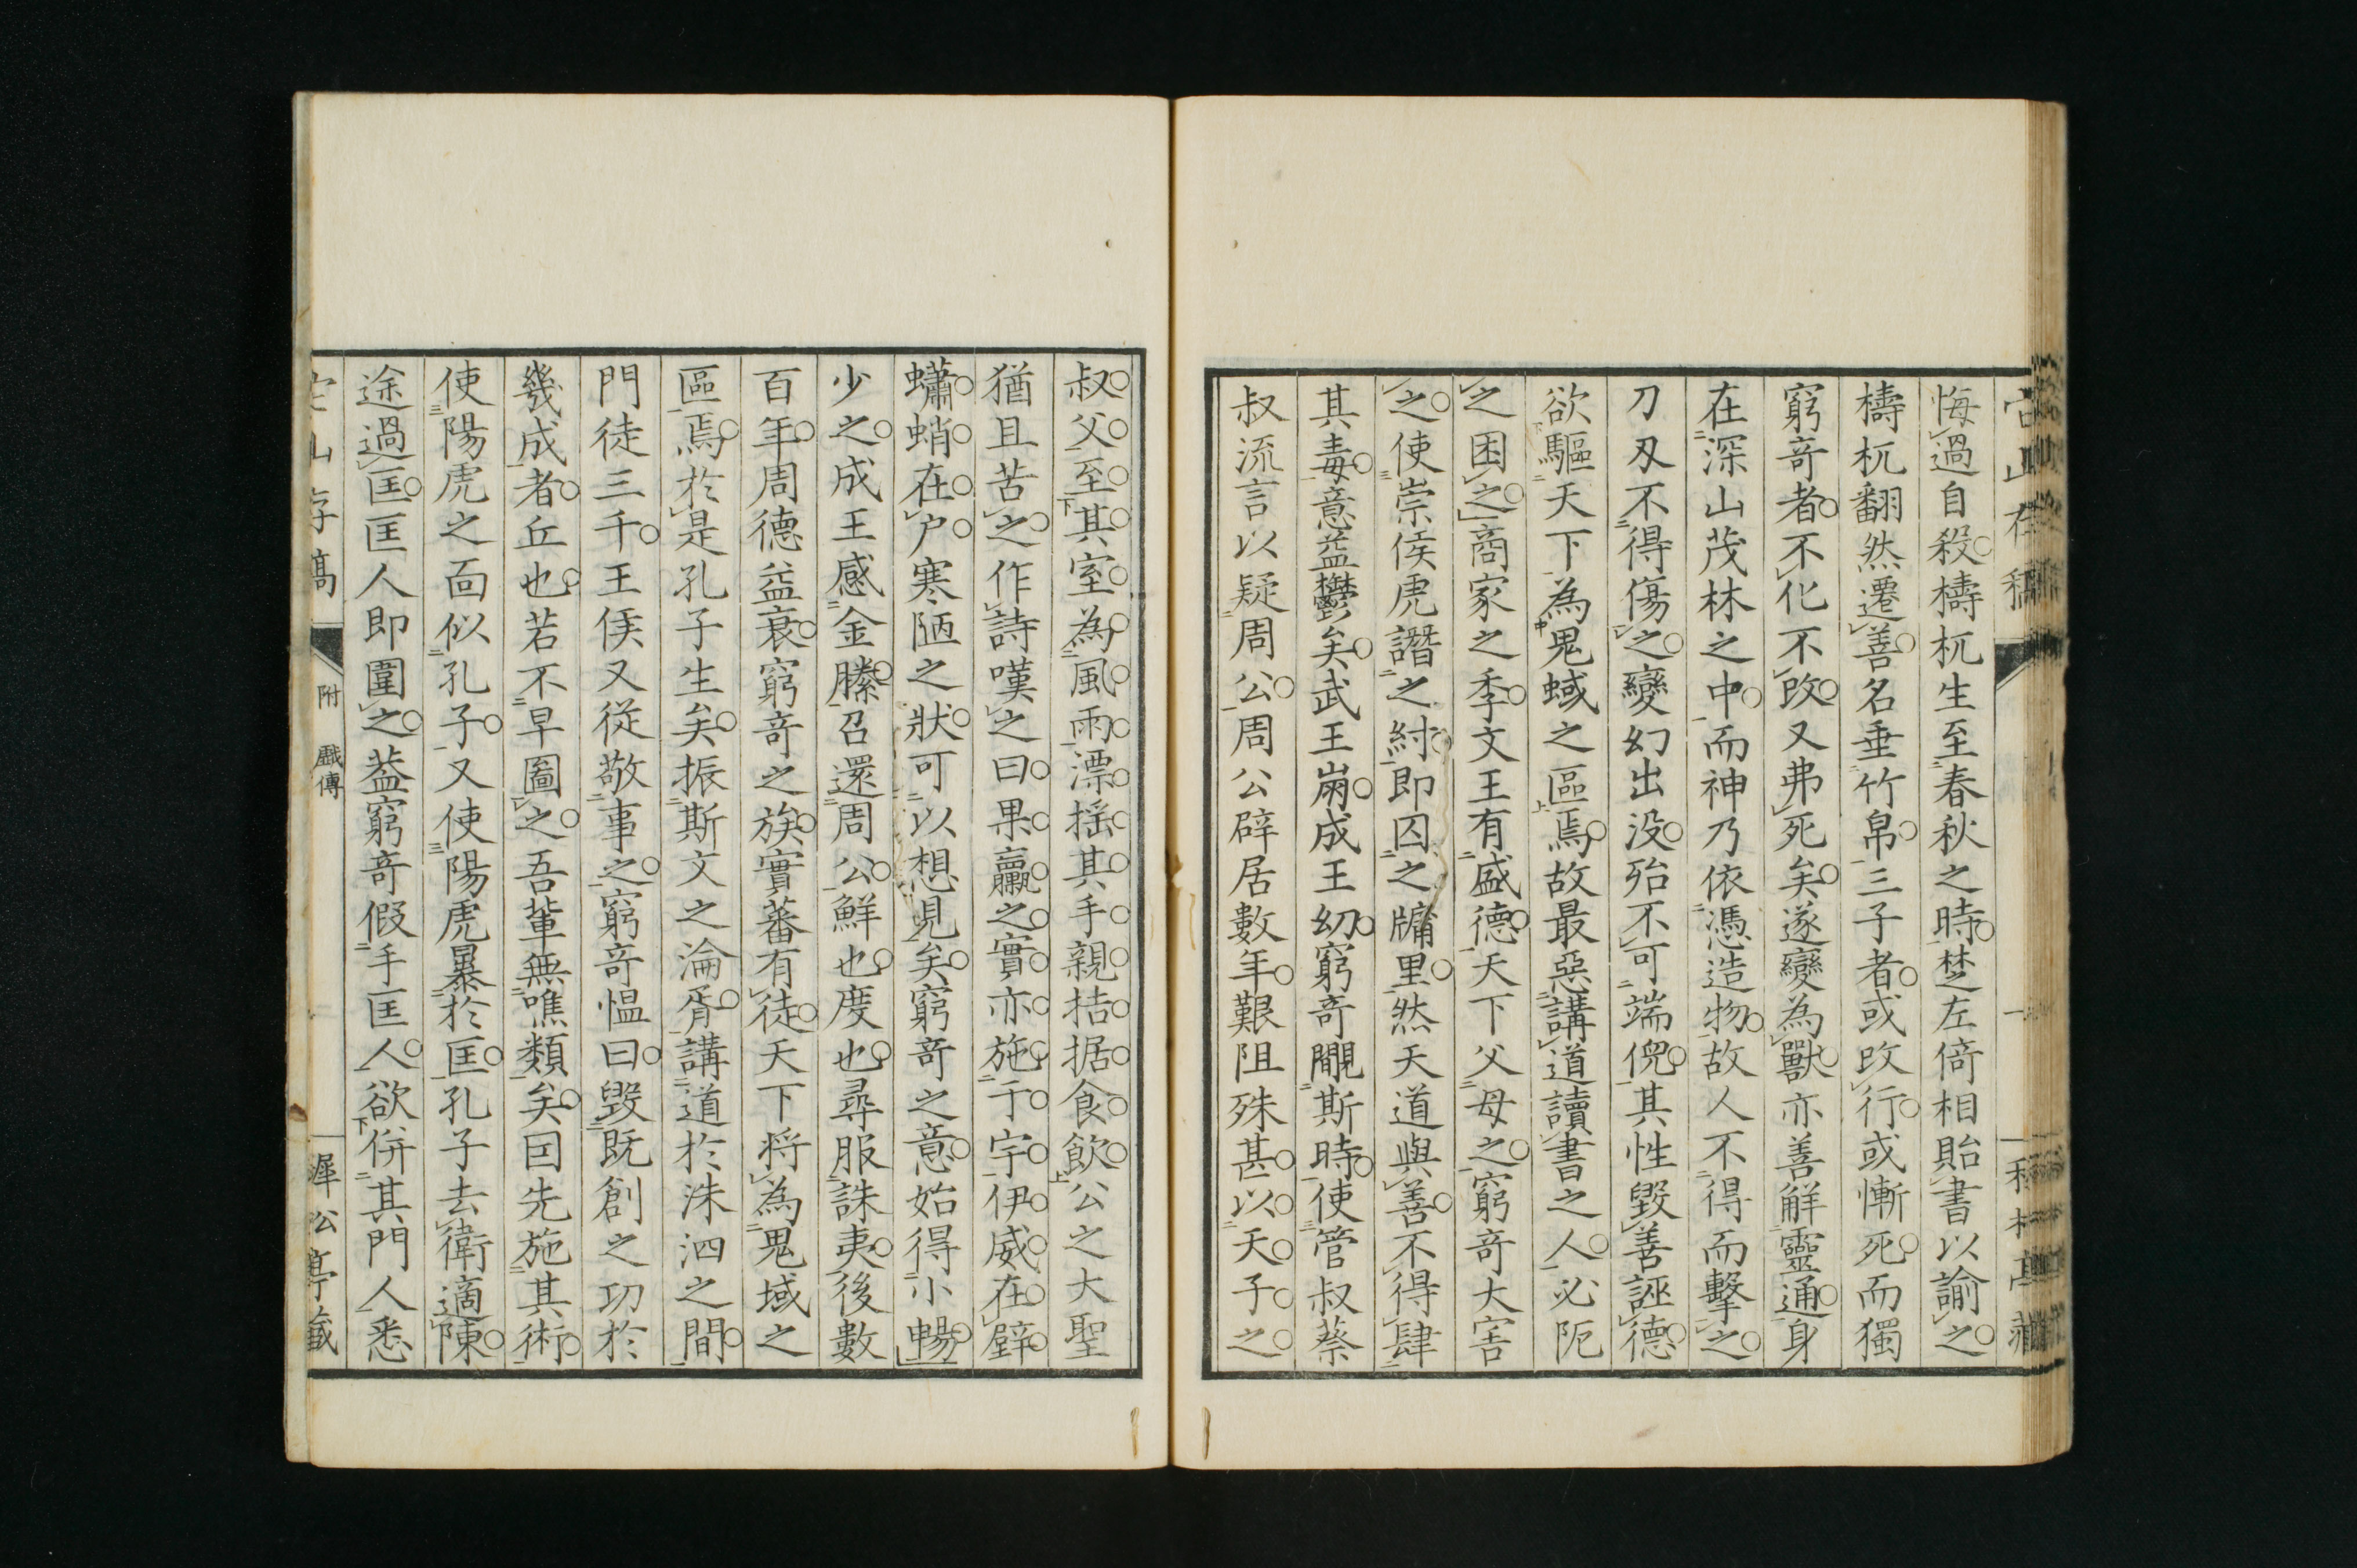 悔過自殺檮杌生至春秋之時楚左倚相貽書以諭之
檮杌翻然遷善名垂竹帛三子者或改行或慚死而獨
窮奇者不化不改又弗死矣遂變為獸亦善解靈通身
在深山茂林之中而神乃依憑造物故人不得而擊之
刀刃不得傷之變幻出没殆不可端倪其性毀善誣德
欲驅天下為鬼蜮之區焉故最惡講道讀書之人必阨
之困之商家之季文王有盛德天下父母之窮奇大害
之使崇侯虎譖之紂即囚之牖里然天道與善不得肆
其毒意益鬱矣武王崩成王幼窮奇瞷斯時使管叔蔡
叔流言以疑周公周公辟居數年艱阻殊甚以天子之
叔父至其室為風雨漂揺其手親拮据食飲公之大聖
猶且苦之作詩嘆之曰果臝之實亦施于宇伊威在壁
蠨蛸在户寒陋之狀可以想見矣窮奇之意始得小暢
少之成王感金縢召還周公鮮也度也尋服誅夷後數
百年周德益衰窮奇之族實蕃有徒天下将為鬼域之
區焉於是孔子生矣振斯文之淪胥講道於洙泗之間
門徒三千王侯又従敬事之窮奇愠曰毀既創之功於
幾成者丘也若不早圖之吾輩無噍類矣因先施其術
使陽虎之面似孔子又使陽虎暴於匡孔子去衛適陳
途過匡匡人即圍之葢窮奇假手匡人欲併其門人悉
山存稿
附 戲傳
犀公亭蔵